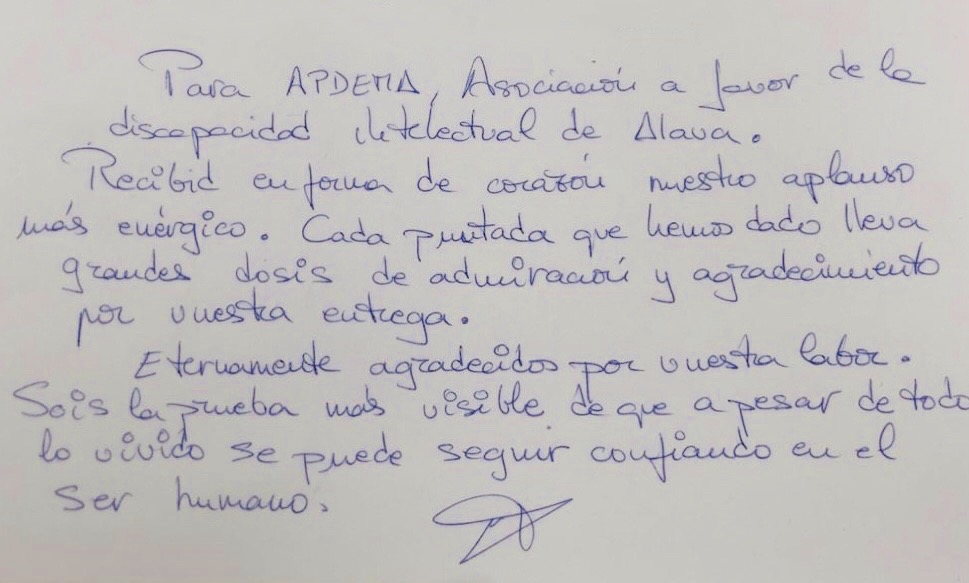 Para APDEMA, Asociación a favor de la
discapacidad intelectual de Alava.
Recibid en forma de corazón nuestro aplauso
más enérgico. Cada puntada que hemos dado lleva
grandes dosis de admiración y agradecimiento
por vuestra entrega.
Eternamente agradecidos por vuestra labor.
Sois la prueba más visible de que a pesar de todo
lo vivido se puede seguir confiando en el
ser humano.